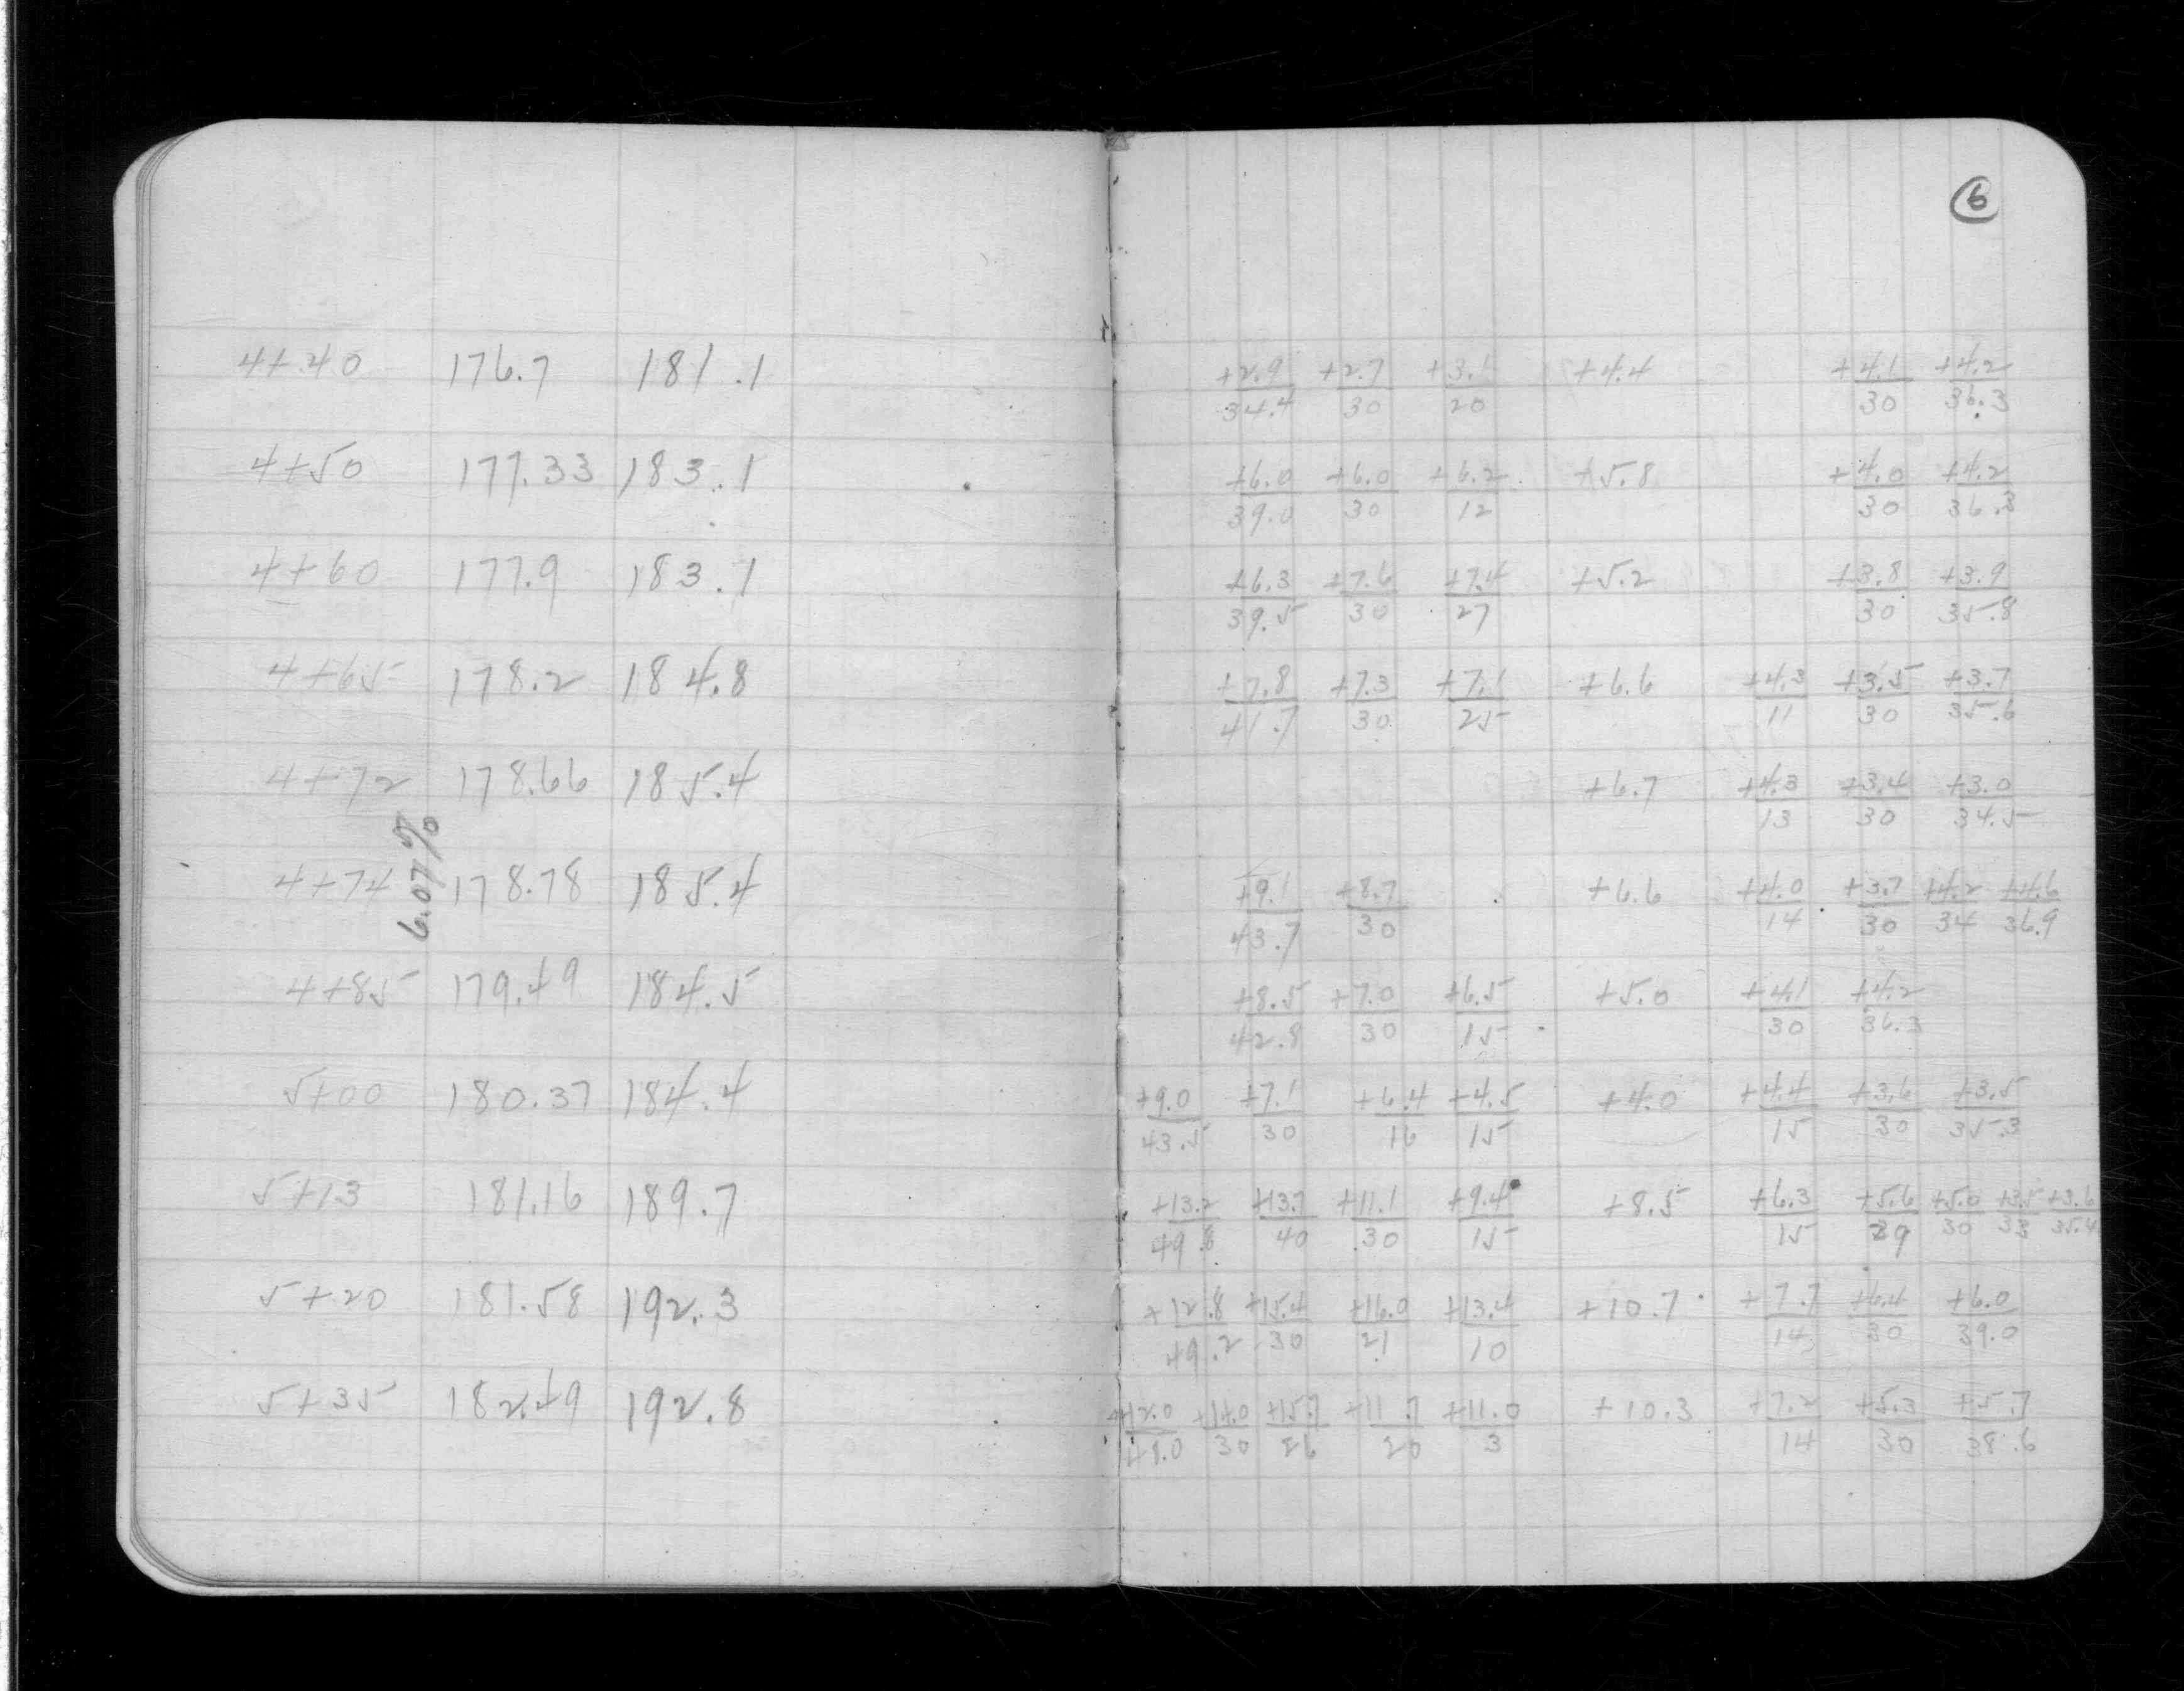 6
4+40 176.7 181.1 +2.9/34.4 +2.7/30 +3.1/20 +4.4 +4.1/30 +4.2/36.3
4+50 177.33 183.1 +6.0/39.0 +6.0/30 +6.2/12 +5.8 +4.0/30 +4.2/36.3
4+60 177.9 183.1 +6.3/39.5 +7.6/30 +7.4/27 +5.2 +3.8/30 +3.9/35.8
4+65 178.2 184.8 +7.8/41.7 +7.3/30 +7.1/25 +6.6 +4.3/11 +3.5/30 +3.7/35.6
4+72 178.66 185.4 +6.7 +4.3/13 +3.4/30 +3.0/34.5
6.07%
4+74 178.78 185.4 +9.1/43.7 +8.7/30 +6.6 +4.0/14 +3.7/30 +4.2/34 +4.6/36.9
4+85 179.49 184.5 +8.5/42.8 +7.0/30 +6.5/15 +5.0 +4.1/30 +4.2/36.3
5+00 180.37 184.4 +9.0/43.5 +7.1/30 +6.4/16 +4.5/15 +4.0 +4.4/15 +3.6/30 +3.5/35.3
5+13 181.16 189.7 +13.2/49.8 +13.7/40 +11.1/30 +9.4/15 +8.5 +6.3/15 +5.6/29 +5.0/30 +3.5/33 +3.6/35.4
5+20 181.58 192.3 +12.8/49.2 +15.4/30 +16.0/21 +13.4/10 +10.7 +7.7/14 +6.4/30 +6.0/39.0
5+35 182.49 192.8 +12.0/48.0 +14.0/30 +15.7/26 +11.7/20 +11.0/3 +10.3 +7.2/14 +5.3/30 +5.7/38.6